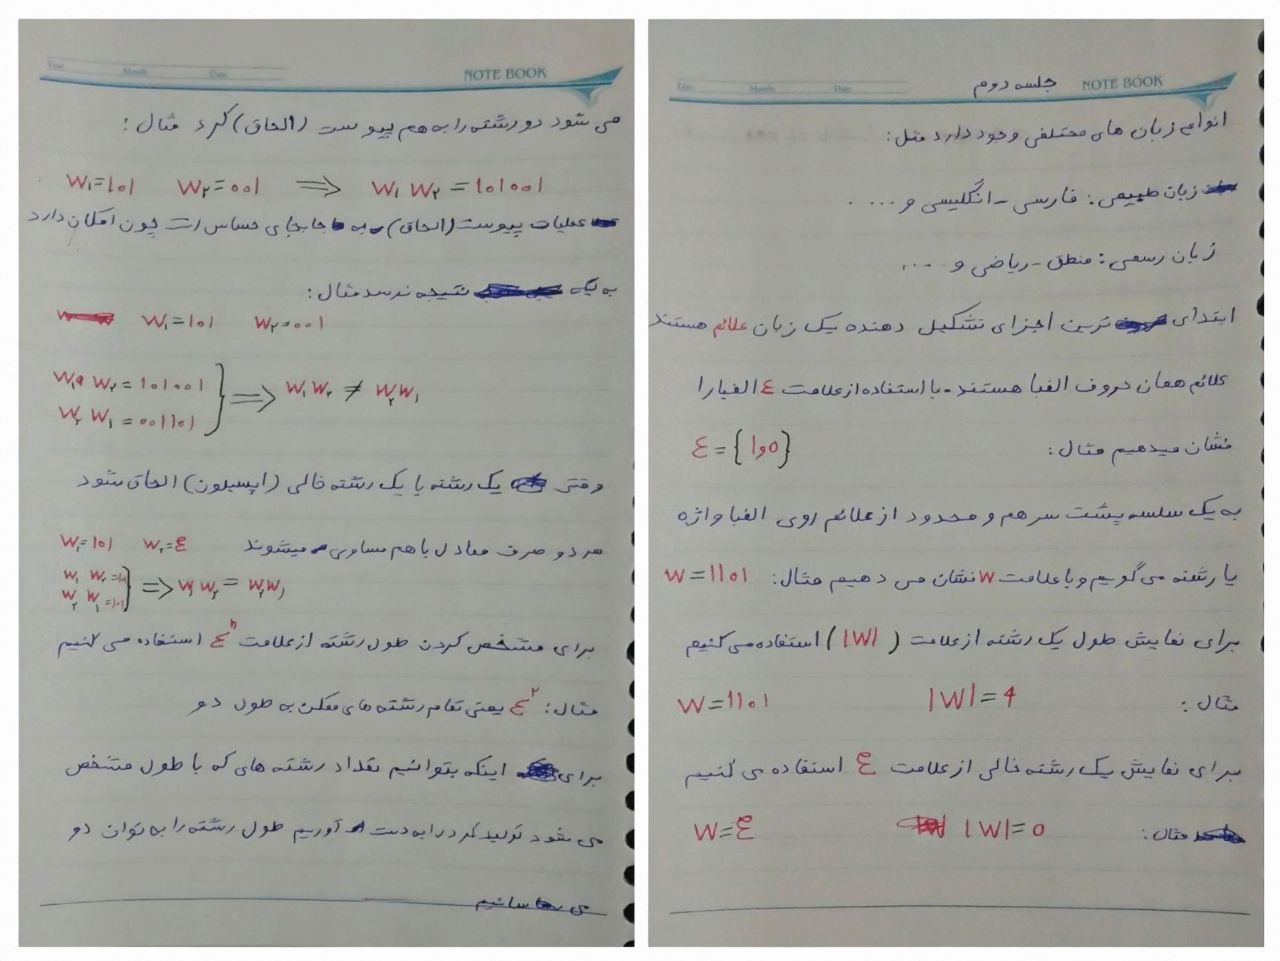 جلسه دوم NOTE BOOK
Year Month Date
انواع زبان های مختلفی وجود دارد مثل:
زبان طبیعی: فارسی - انگلیسی و ....
زبان رسمی: منطق - ریاضی و ....
ابتدای ترین اجزای تشکیل دهنده یک زبان علائم هستند
علائم همان حروف الفبا هستند. با استفاده از علامت ٤ الفبا را
نشان میدهیم مثال: ٤ = {1و0}
به یک سلسه پشت سر هم و محدود از علائم روی الفبا واژه
یا رشته می گوییم و با علامت W نشان می دهیم مثال: W = 1101
برای نمایش طول یک رشته از علامت (|W|) استفاده می کنیم
مثال: |W| = 4 W = 1101
برای نمایش یک رشته خالی از علامت ع استفاده می کنیم
مثال: |W| = 0 W = ع
NOTE BOOK
Year Month Date
می شود دو رشته را به هم پیوست (الحاق) کرد مثال:
W₁ = 101 W₂ = 001 ⟹ W₁ W₂ = 101001
عملیات پیوست (الحاق) به جابجای حساس است چون امکان دارد
به یک نتیجه نرسد مثال:
W₁ = 101 W₂ = 001
W₁ W₂ = 101001
W₂ W₁ = 001101 } ⟹ W₁ W₂ ≠ W₂ W₁
وقتی یک رشته با یک رشته خالی (اپسیلون) الحاق شود
هر دو طرف معادل با هم مساوی میشوند W₁ = 101 W₂ = ع
W₁ W₂ = 101
W₂ W₁ = 101 } ⟹ W₁ W₂ = W₂ W₁
برای مشخص کردن طول رشته از علامت ٤ⁿ استفاده می کنیم
مثال: ٤² یعنی تمام رشته های ممکن به طول دو
برای اینکه بتوانیم تعداد رشته های که با طول مشخص
می شود تولید کرد را به دست آوریم طول رشته را به توان دو
می رسانیم